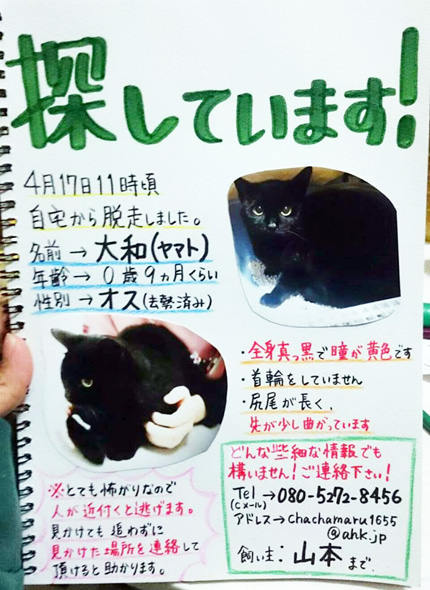 探しています!
4月17日11時頃
自宅から脱走しました。
名前→大和(ヤマト)
年齢→0歳9ヵ月くらい
性別→オス(去勢済み)
・全身真っ黒で瞳が黄色です
・首輪をしていません
・尻尾が長く、
先が少し曲がっています
※とても怖がりなので
人が近付くと逃げます。
見かけても追わずに
見かけた場所を連絡して
頂けると助かります。
どんな些細な情報でも
構いません!ご連絡下さい!
Tel→080-5272-8456
(Cメール)
アドレス→chachamaru1655
@ahk.jp
飼い主:山本まで